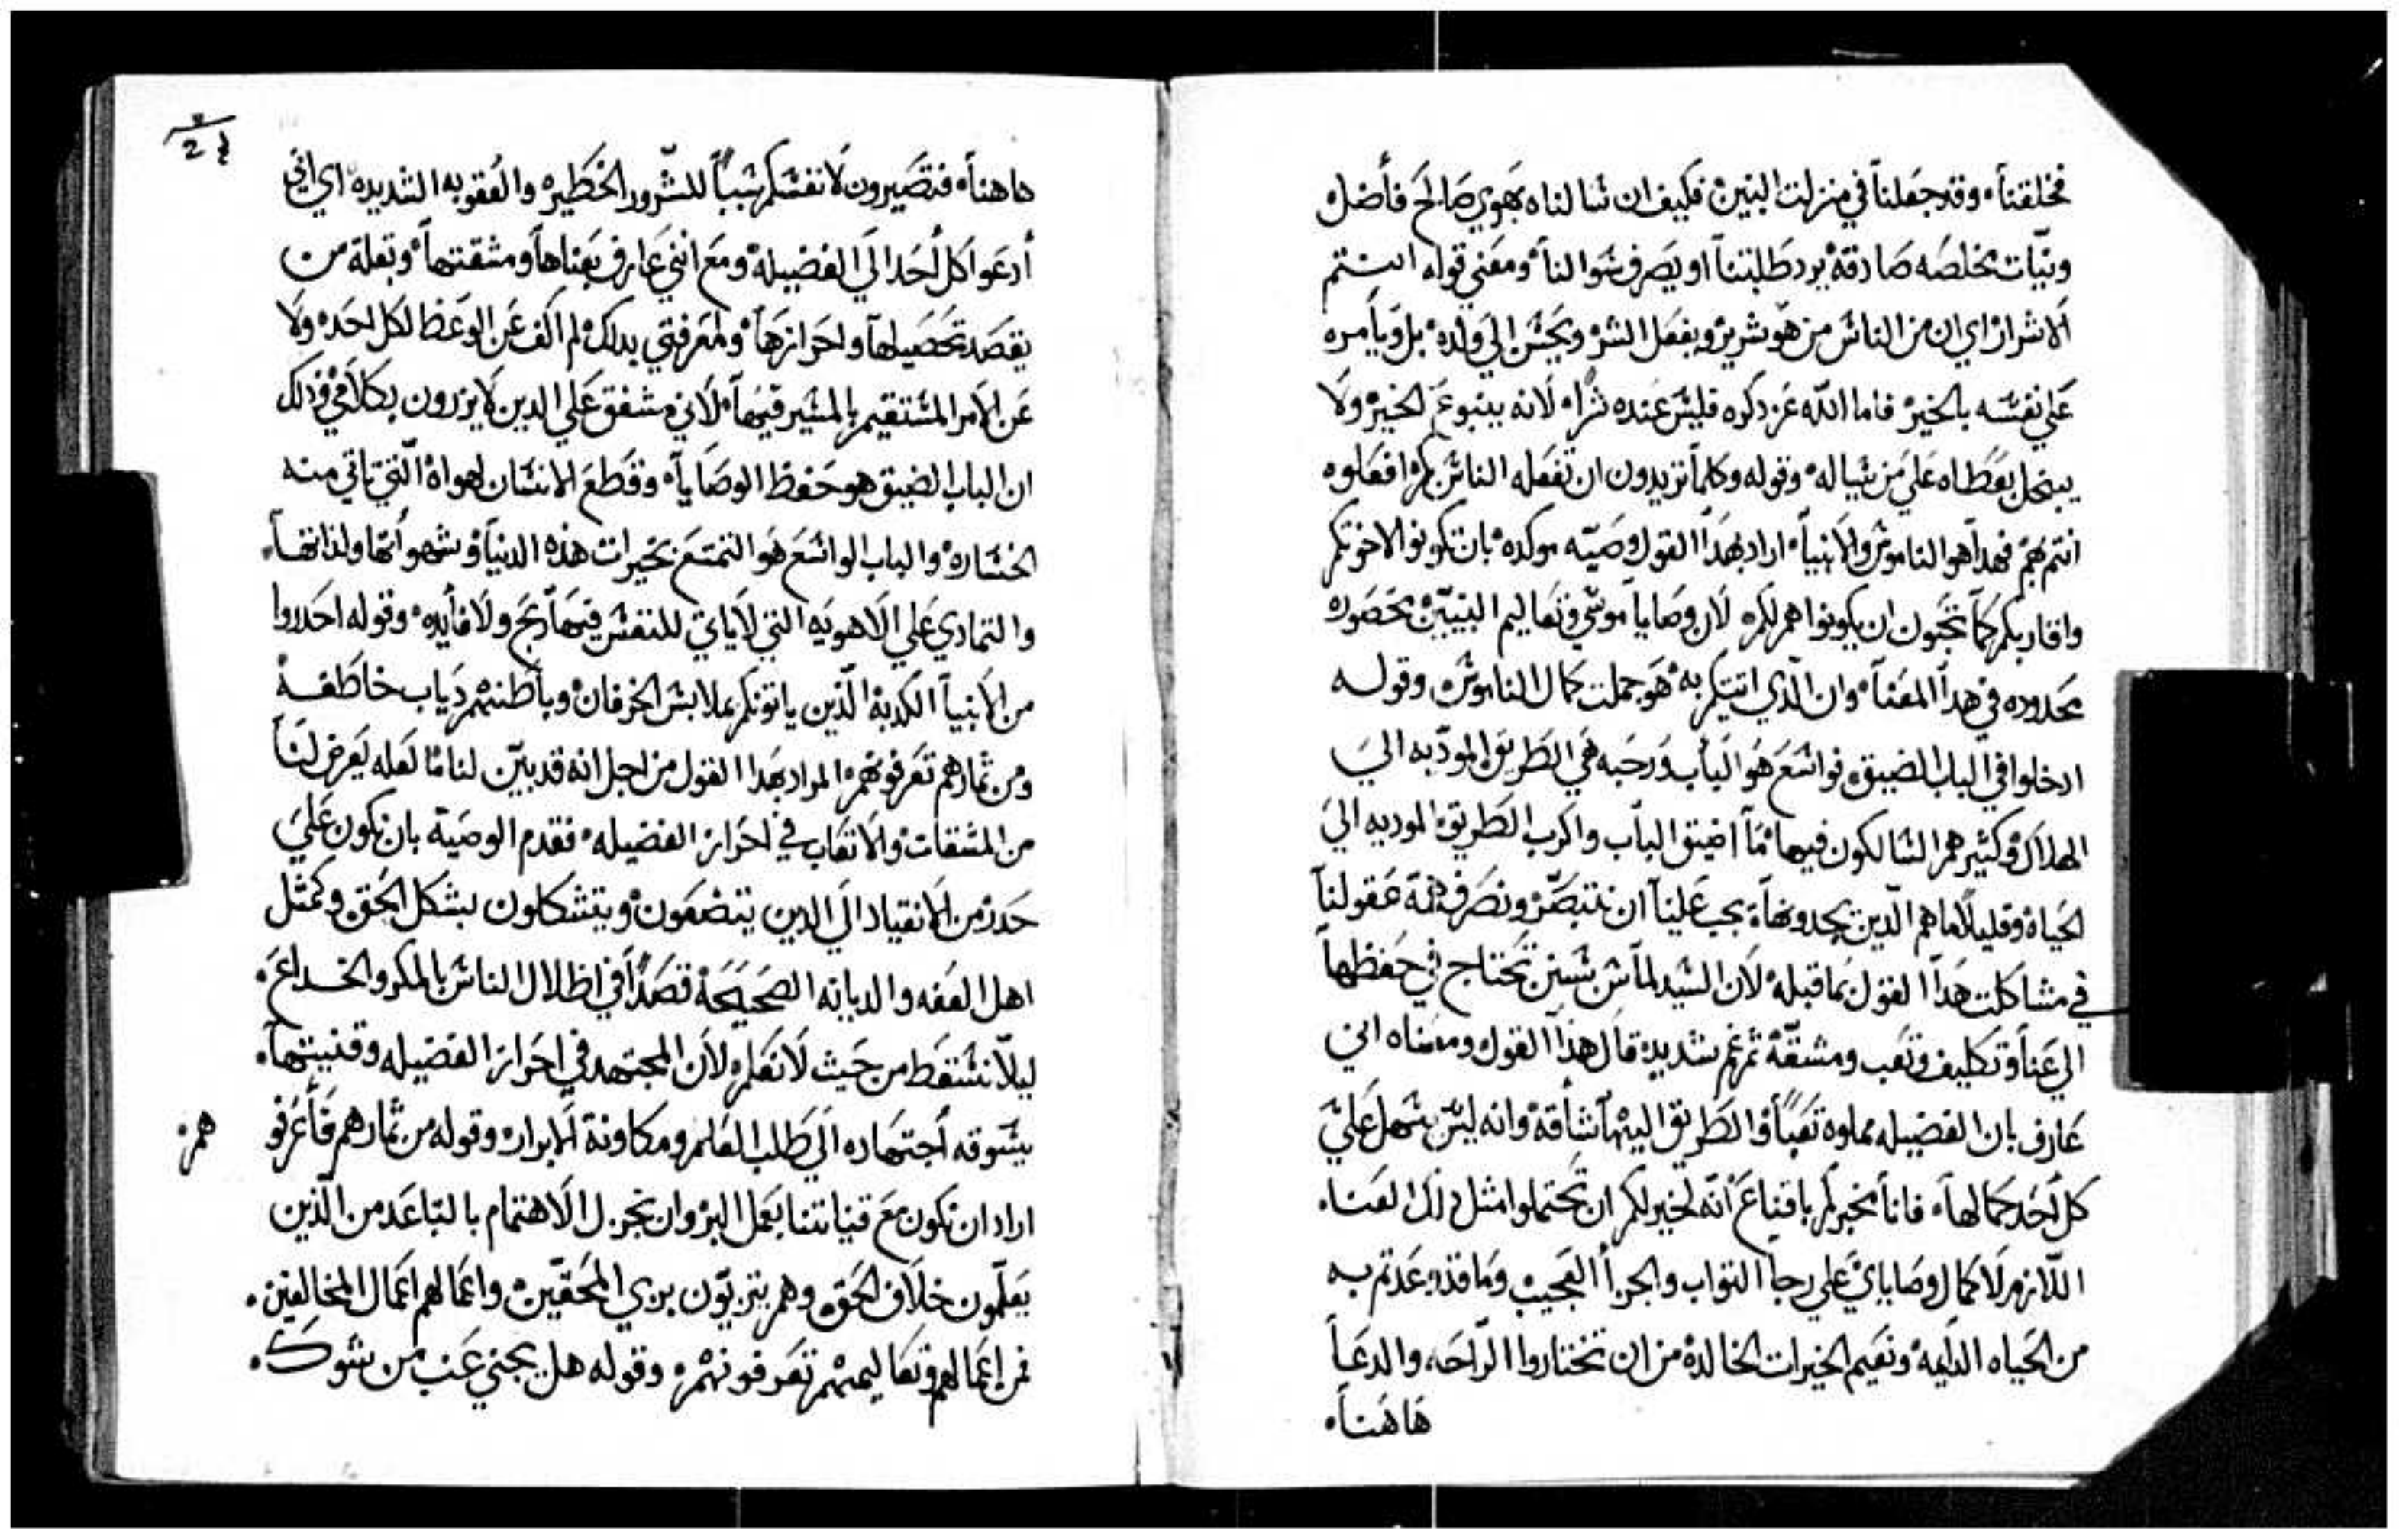 فخلقتنا، وقد جعلنا في منزلت البنين، فكيف ان سالناه بهوي صالح فاضل
ونيات مخلصه صادقة يرد طلبتنا او يصرف سوالنا، ومعني قوله انتم
الاشرار اي ان من الناس من هو شرير ويفعل الشر ويحسن الي ولده، بل ويامره
علي نفسه بالخير، فاما الله عز ذكره فليس عنده شرا، لانه ينبوع الخير ولا
يبخل بعطاه علي من يساله، وقوله وكلما تريدون ان تفعله الناس بكم، افعلوه
انتم بهم، فهدا هو الناموس والانبيا، اراد بهدا القول وصيه موكده، بان تكونوا لاخوتكم
واقاربكم كما تحبون ان يكونوا هم لكم، لان وصايا موسي وتعاليم النبيين محصوره
محدوده في هدا المعنا، وان الذي اتيتكم به، هو جملت كمال الناموس، وقوله
ادخلوا في الباب الضيق، فواسع هو الباب ورحبه هي الطريق المودبه الي
الهلاك، وكثير هم السالكون فيها، ما اضيق الباب واكرب الطريق المودبه الي
الحياة، وقليلا ما هم الدين يجدونها، يجب علينا ان نتبصر ونصرف همة عقولنا
في مشاكلت هدا القول بما قبله، لان السيد لما سن سنن تحتاج في حفظها
الي عنا وتكليف وتعب ومشقة، ثم غم شديد، قال هذا القول ومعناه اني
عارف بان الفضيله مملوه تعبا، والطريق اليها شاقة، وانه ليس يسهل علي
كل احد كمالها، فانا مخبركم باقناع انه لخير لكم ان تحتملوا مثل ذلك العنا،
اللازم لاكمال وصاياي، علي رجا الثواب والجزا العجيب وما قد وعدتم به
من الحياه الدايمه، ونعيم الخيرات الخالدة، من ان تختاروا الراحه والدعا
هاهنا،
هاهنا، فتصيرون لانفسكم سببا للشرور الخطيره والعقوبه الشديده، اي اني
أدعوا كل احد الي الفضيلة، ومع انني عارف بعناها ومشقتها، وبقلة من
يقصد تحصيلها واحرازها، ولمعرفتي بدلك، لم اكف عن الوعظ لكل احد، ولا
عن الامر المستقيم بالمسير فيها، لاني مشفق علي الدين لا يزرون بكلامي، وذلك
ان الباب الضيق هو حفظ الوصايا، وقطع الانسان لهواه التي تاتي منه
الخساره، والباب الواسع هو التمتع بخيرات هذه الدنيا، وشهواتها ولذاتها،
والتمادي علي الاهويه التي لا ياتي للنفس فيها ربح ولا فايده، وقوله احدروا
من الانبيا الكدبة الذين ياتونكم بملابس الخرفان، وباطنهم دياب خاطفه
ومن ثمارهم تعرفونهم، المراد بهدا القول من اجل انه قد بين لنا ما لعله يعرض لنا
من المشقات والاتعاب في احراز الفضيله، فقدم الوصية بان نكون علي
حدر من الانقياد الي الدين يتضعون، ويتشكلون بشكل الحق، وكمثل
اهل العفه والديانه الصحيحة، قصدا في اظلال الناس بالمكر والخداع،
ليلا نسقط من حيث لا نعلم، لان المجتهد في احراز الفضيله وقنيتها،
يسوقه أجتهاده الي طلب العلم ومكاونة الابرار، وقوله من ثمارهم فأعرفو
هم،
اراد ان نكون مع قنياتنا بعمل البر، وان نجزل الاهتمام بالتباعد من الذين
يعلمون خلاف الحق، وهم يتزيون بزي المحقين، واعمالهم اعمال المخالفين،
فمن اعمالهم وتعاليمهم تعرفونهم، وقوله هل يجني عنب من شوك،